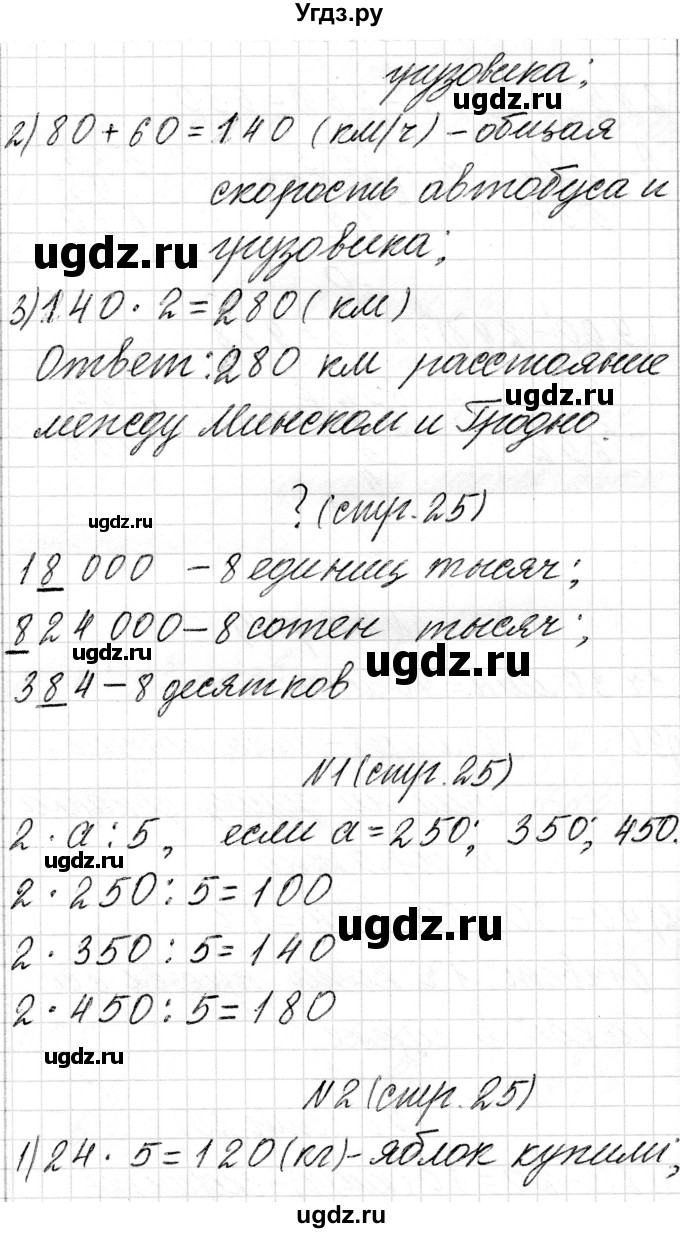 Угдз.ру
грузовика;
ugdz.ru
2) 80 + 60 = 140 (км/ч) - общая
скорость автобуса и
ugdz.ru
грузовика;
3) 140 · 2 = 280 (км)
Ответ: 280 км расстояние
ugdz.ru
между Минском и Гродно.
ugdz.ru
? (стр. 25)
18 000 - 8 единиц тысяч;
824 000 - 8 сотен тысяч;
ugdz.ru
ugdz.ru
384 - 8 десятков
N1 (стр. 25)
2 · a : 5, если a = 250; 350; 450.
ugdz.ru
2 · 250 : 5 = 100
ugdz.ru
2 · 350 : 5 = 140
2 · 450 : 5 = 180
ugdz.ru
N2 (стр. 25)
1) 24 · 5 = 120 (кг) - яблок купили;
ugdz.ru